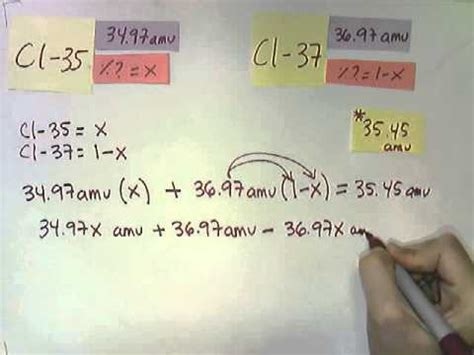 34.97amu
Cl-35
%? = x
36.97amu
Cl-37
%? = 1-x
*35.45
amu
Cl-35 = x
Cl-37 = 1-x
34.97amu (x) + 36.97amu (1-x) = 35.45amu
34.97x amu + 36.97amu - 36.97x am